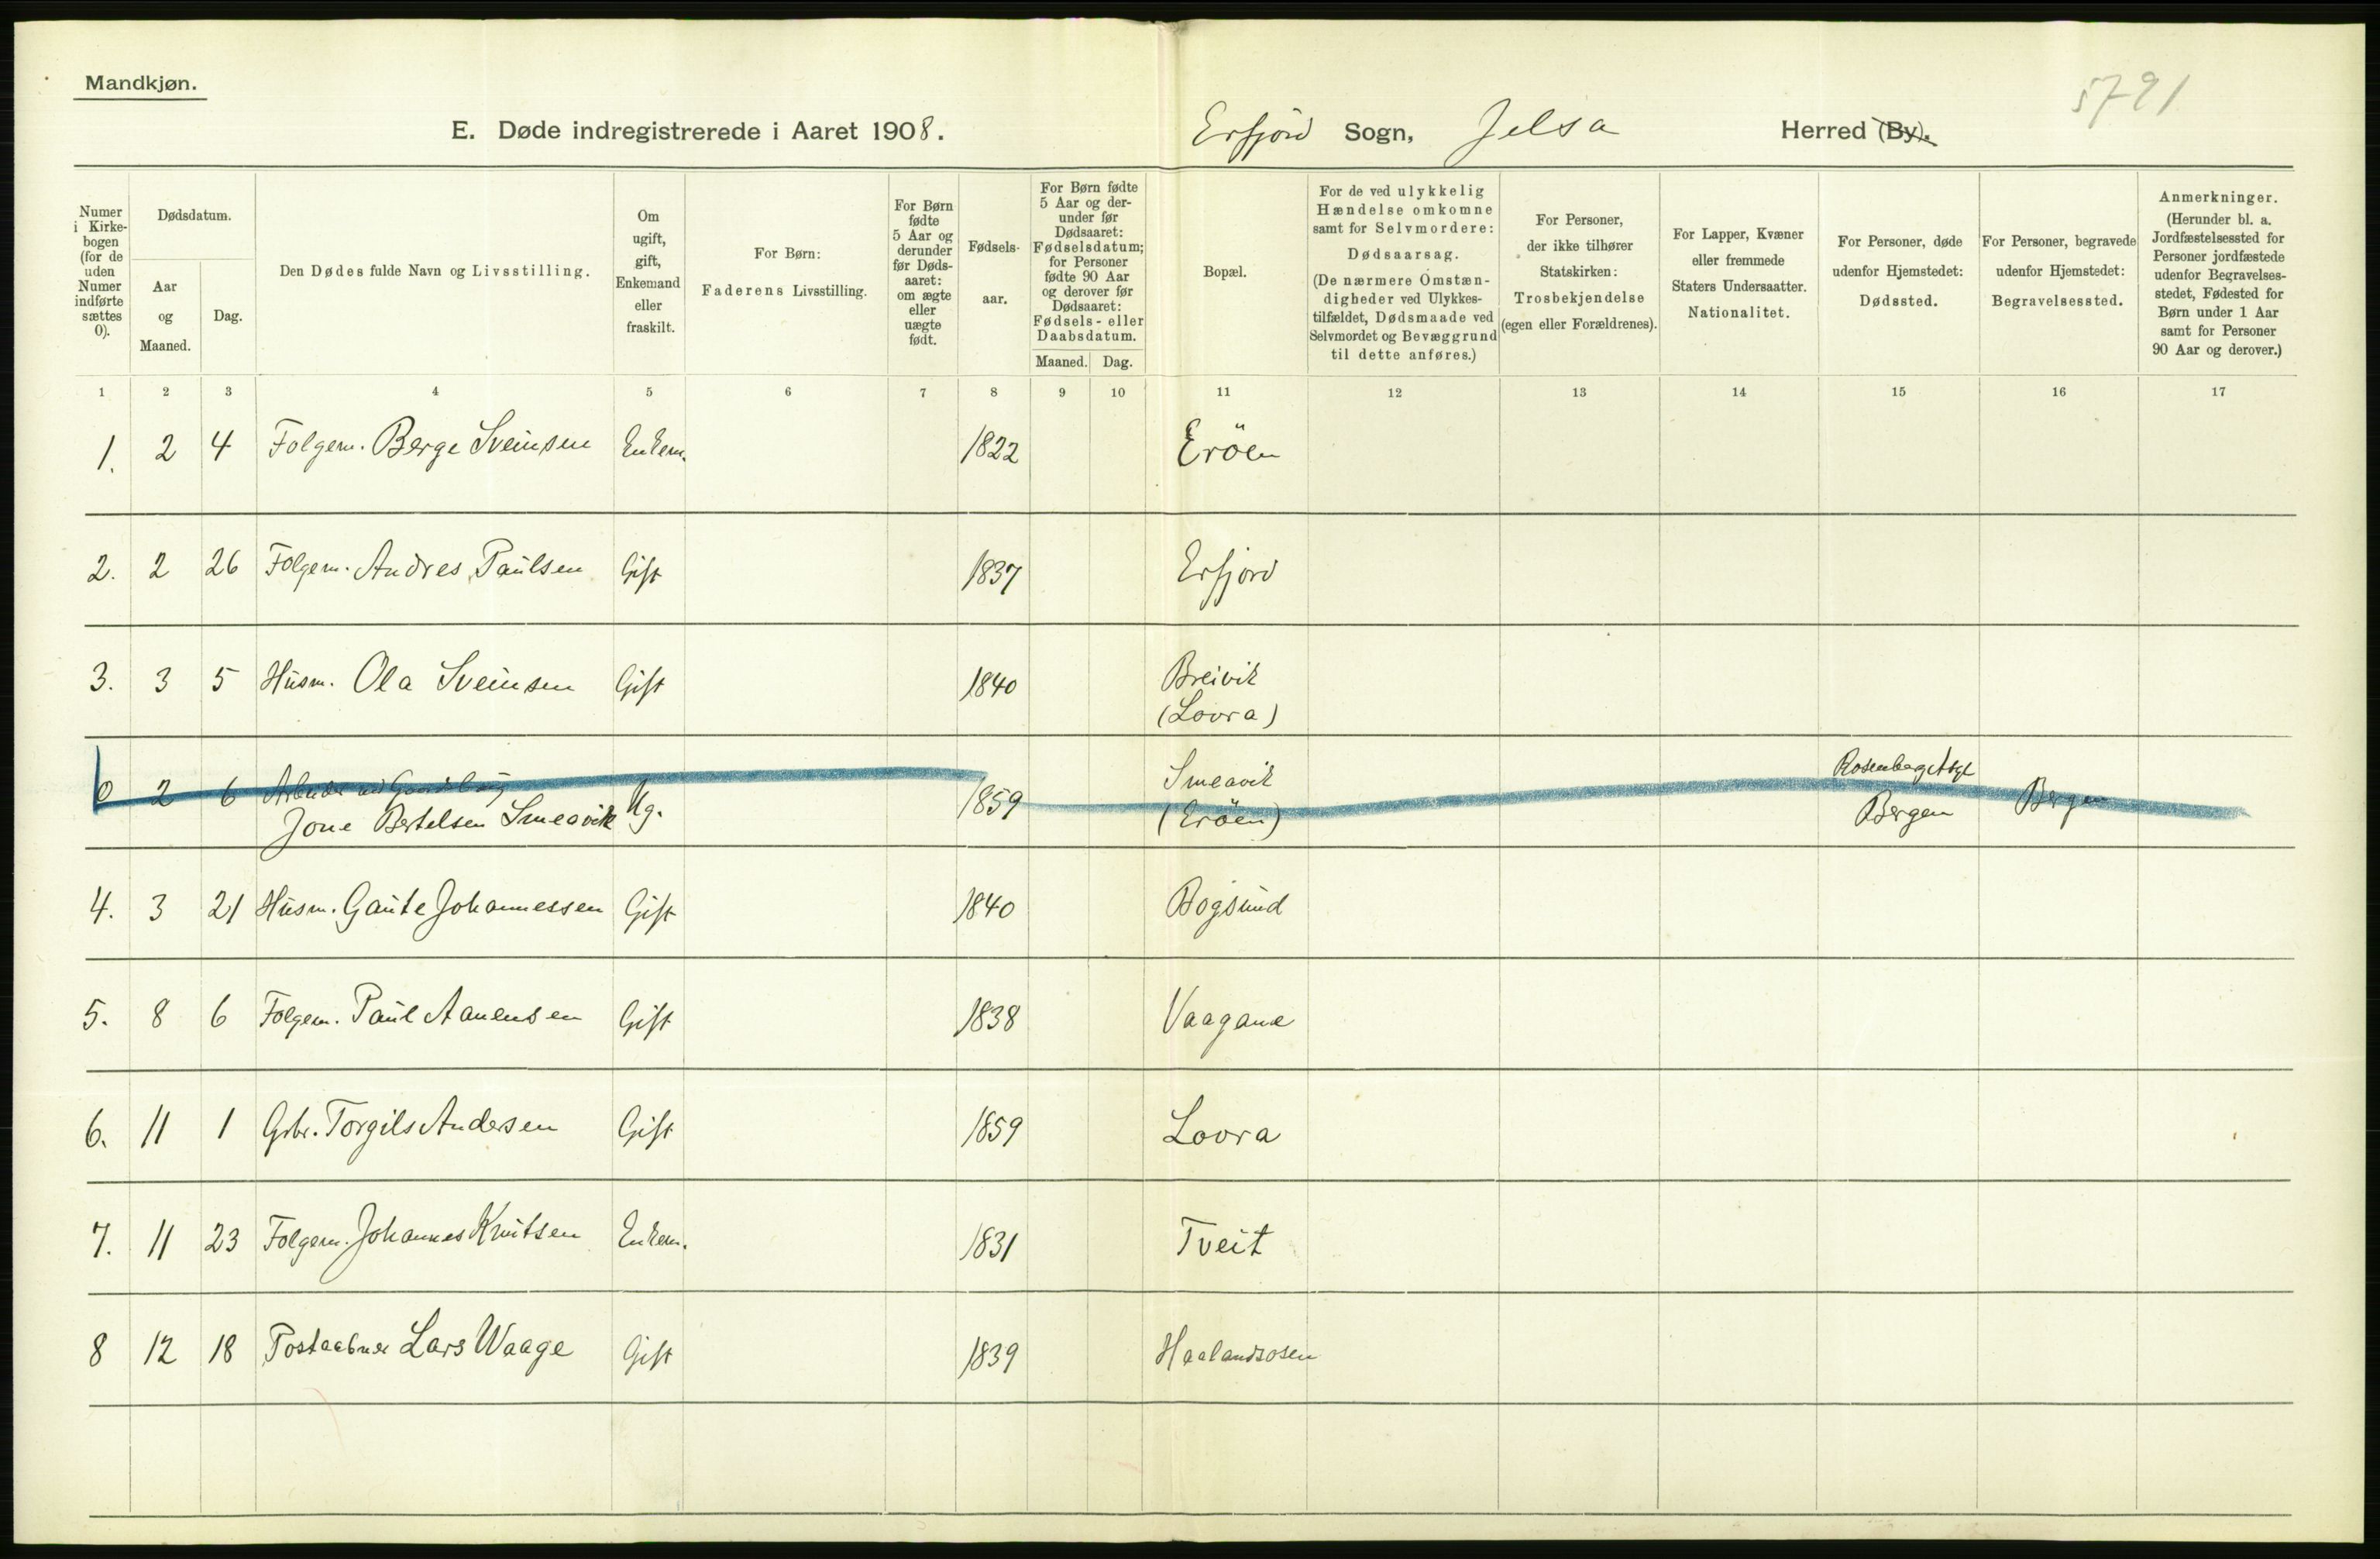 Mandkjøn.
5791
E. Døde indregistrerede i Aaret 1908. Erfjord Sogn, Jelsa Herred (By).
Numer i Kirkebogen (for de uden Numer indførte sættes 0).
Dødsdatum.
Aar og Maaned.
Dag.
Den Dødes fulde Navn og Livsstilling.
Om ugift, gift, Enkemand eller fraskilt.
For Børn: Faderens Livsstilling.
For Børn fødte 5 Aar og derunder før Dødsaaret: om ægte eller uægte født.
Fødselsaar.
For Børn fødte 5 Aar og derunder før Dødsaaret: Fødselsdatum; for Personer fødte 90 Aar og derover før Dødsaaret: Fødsels- eller Daabsdatum.
Maaned. Dag.
Bopæl.
For de ved ulykkelig Hændelse omkomne samt for Selvmordere: Dødsaarsag. (De nærmere Omstændigheder ved Ulykkestilfældet, Dødsmaade ved Selvmordet og Bevæggrund til dette anføres.)
For Personer, der ikke tilhører Statskirken: Trosbekjendelse (egen eller Forældrenes).
For Lapper, Kvæner eller fremmede Staters Undersaatter. Nationalitet.
For Personer, døde udenfor Hjemstedet: Dødssted.
For Personer, begravede udenfor Hjemstedet: Begravelsessted.
Anmerkninger. (Herunder bl. a. Jordfæstelsessted for Personer jordfæstede udenfor Begravelsesstedet, Fødested for Børn under 1 Aar samt for Personer 90 Aar og derover.)
1 2 3 4 5 6 7 8 9 10 11 12 13 14 15 16 17
1. 2 4 Folgem. Berge Sveinsen Enkem. 1822 Eröen
2. 2 26 Folgem. Andres Paulsen Gift 1837 Erfjord
3. 3 5 Husm. Ola Sveinsen Gift 1840 Breivik
(Lovra)
0 2 6 Arbeider ved Ug. 1859 Smeavik Bergen
Jone Bertelsen Smeavik (Eröen) Bergen
4. 3 21 Husm. Gaute Johannessen Gift 1840 Bogsund
5. 8 6 Folgem. Paul Aanensen Gift 1838 Vaagane
6. 11 1 Gbr. Torgils Andersen Gift 1859 Lovra
7. 11 23 Folgem. Johannes Knutsen Enkem. 1831 Tveit
8 12 18 Postaabner Lars Waage Gift 1839 Haalandsosen